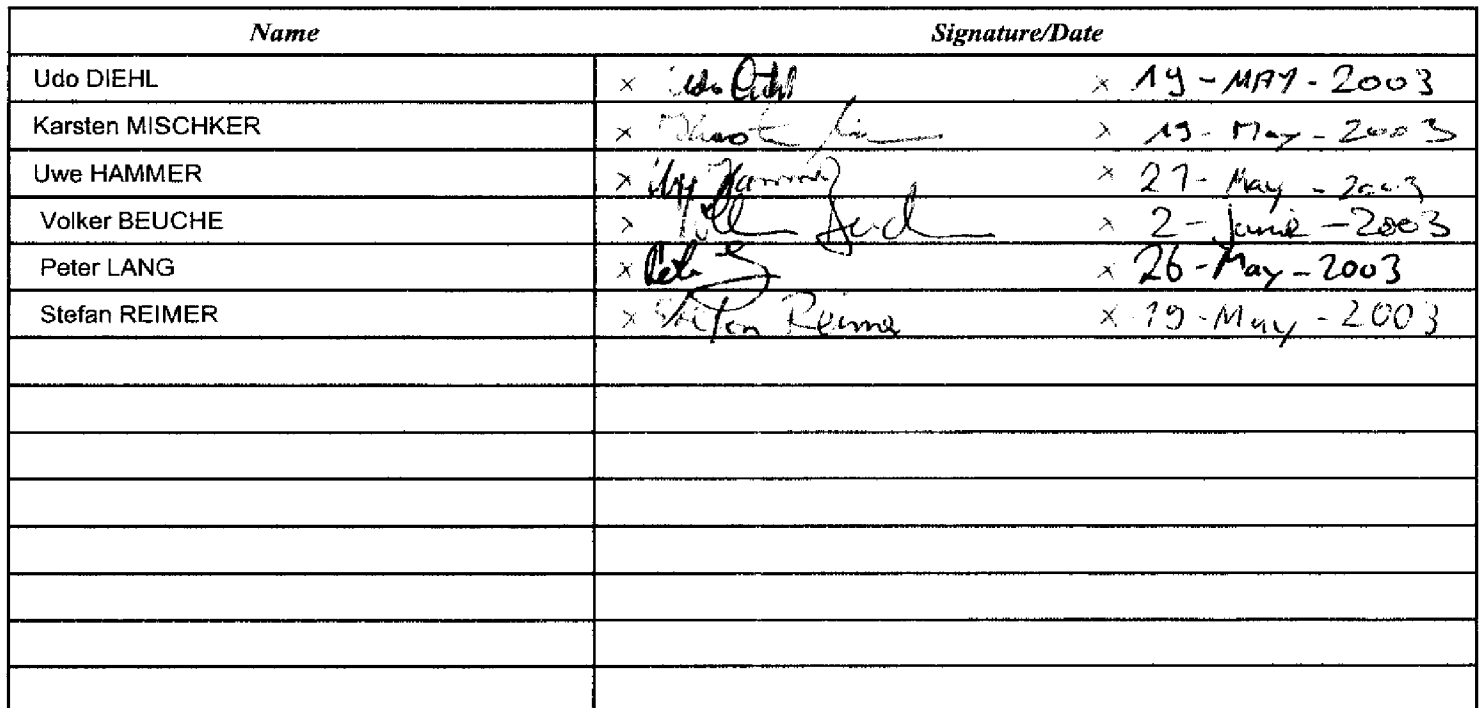 Name Signature/Date
Udo DIEHL × Udo Diehl × 19-MAY-2003
Karsten MISCHKER × × 19-May-2003
Uwe HAMMER × Uwe Hammer × 27-May-2003
Volker BEUCHE × × 2-June-2003
Peter LANG × × 26-May-2003
Stefan REIMER × Stefan Reimer × 19-May-2003